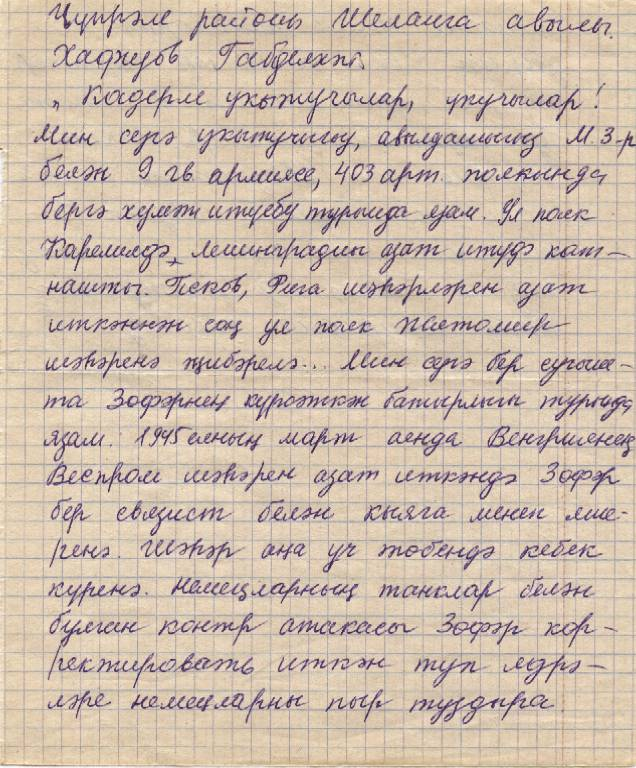 Чүпрәле районы Шеланга авылы.
Хафизов Габделхәй.
„Кадерле укытучылар, укучылар!
Мин сезгә укытучыгыз, авылдашыгыз М.З-р
белән 9 гв. армиясе, 403 арт. полкында
бергә хезмәт итүебез турында язам. Ул полк
Карелиядә, Ленинградны азат итүдә кат-
нашты. Псков, Рига шәһәрләрен азат
иткәннән соң ул полк Житомир
шәһәренә җибәрелә... Мин сезгә бер сугыш-
та Зөфәрнең күрсәткән батырлыгы турында
язам. 1945 елның март аенда Венгриянең
Веспрем шәһәрен азат иткәндә Зөфәр
бер связист белән кыяга менеп яше-
ренә. Шәһәр аңа уч төбендә кебек
күренә. Немецларның танклар белән
булган контр атакасы Зөфәр кор-
ректировать иткән туп ядрә-
ләре немецларны пыр туздыра